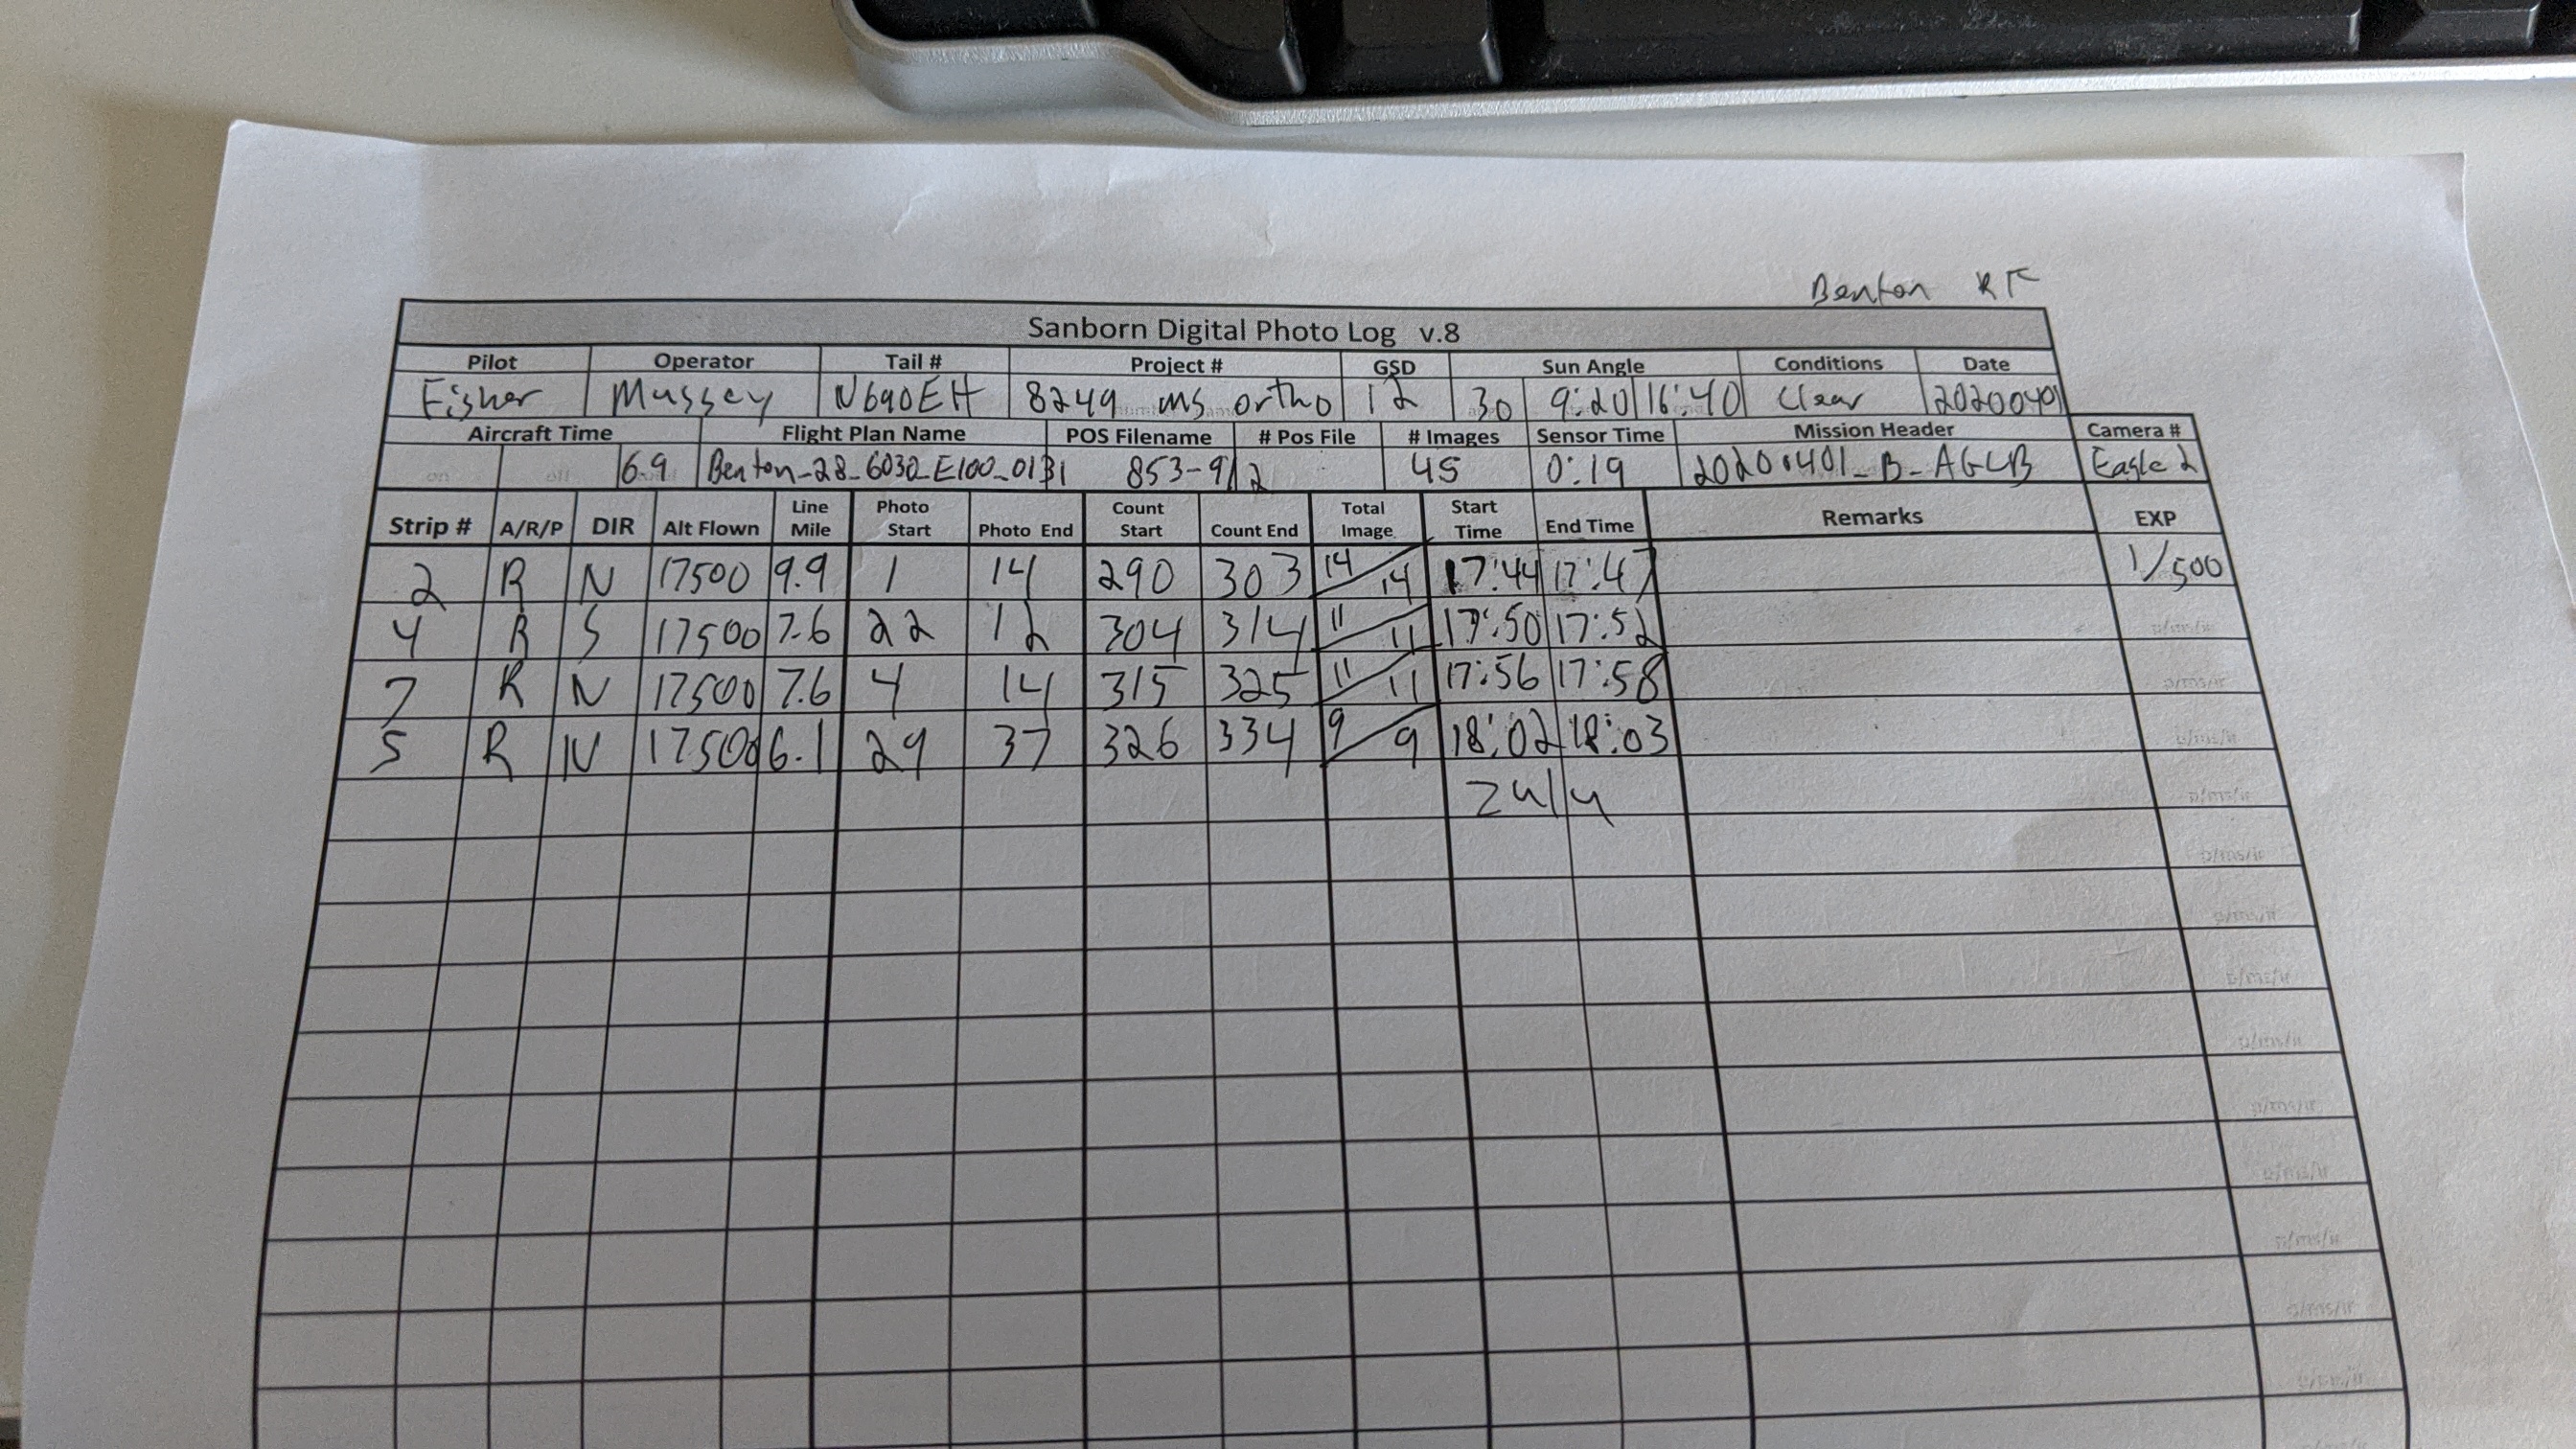 Benton RF
Sanborn Digital Photo Log v.8
Pilot Operator Tail # Project # GSD Sun Angle Conditions Date
Fisher Mussey N690EH 8249 ms ortho 12 30 9:20 16:40 Clear 20200401
Aircraft Time Flight Plan Name POS Filename # Pos File # Images Sensor Time Mission Header Camera #
6.9 Benton_28_6030_E100_0131 853-912 45 0:19 20200401_B_AGCB Eagle 2
Strip # A/R/P DIR Alt Flown Line Mile Photo Start Photo End Count Start Count End Total Image Start Time End Time Remarks EXP
2 R N 17500 9.9 1 14 290 303 14/14 17:44 17:47 1/500
4 R S 17500 7.6 22 12 304 314 11/11 17:50 17:52
7 R N 17500 7.6 4 14 315 325 11/11 17:56 17:58
5 R N 17500 6.1 29 37 326 334 9/9 18:02 18:03